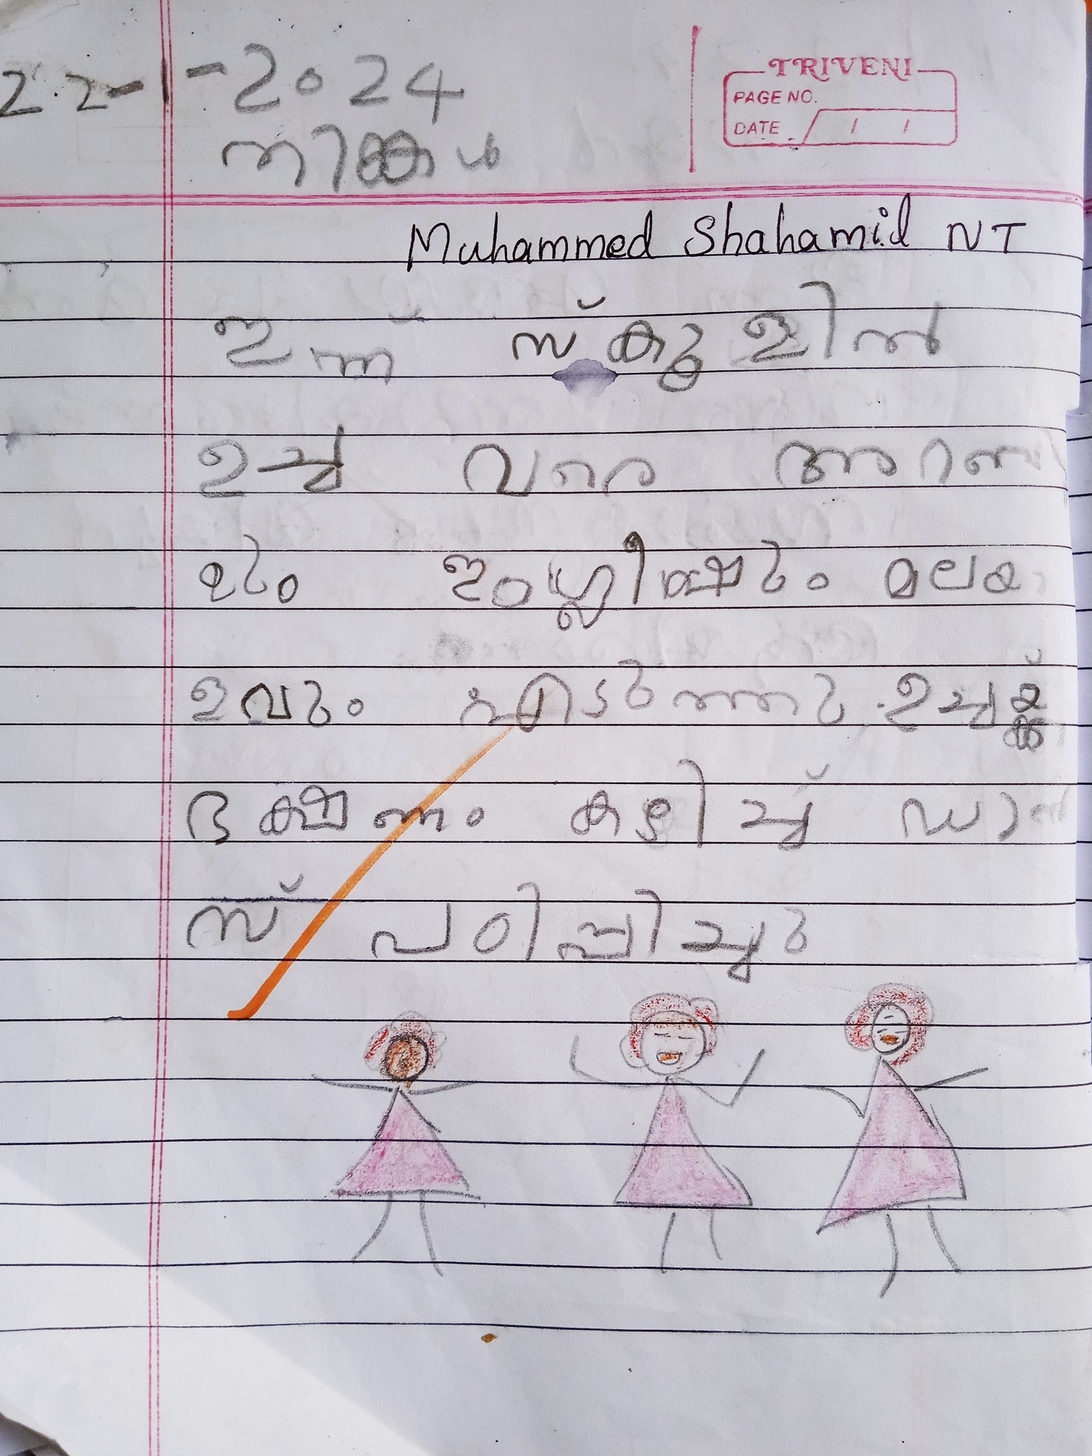 22-1-2024
TRIVENI
PAGE NO.
DATE / / /
തിങ്കൾ
Muhammed Shahamid NT
ഇന്ന് സ്കൂളിൽ
ഉച്ച വരെ
ഇംഗ്ലീഷും മലയ
ഉവും എടുത്തു. ഉച്ചക്ക്
ഭക്ഷണം കഴിച്ച് ഡാൻ
സ് പഠിപ്പിച്ചു